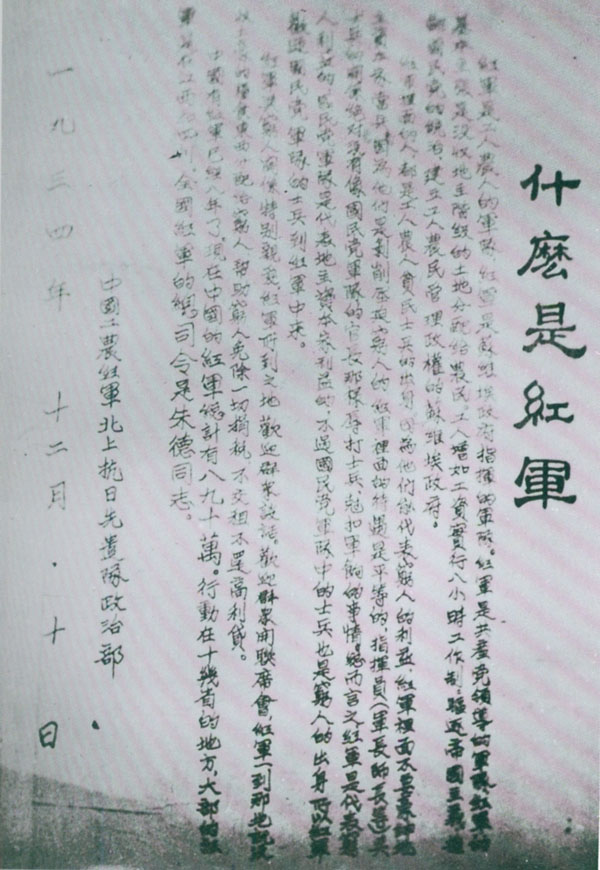 什麼是紅軍
紅軍是工人農人的軍隊，紅軍是蘇維埃政府指揮的軍隊。紅軍是共產党領導的軍隊。紅軍的
基本主張是没收地主階級的土地分配給農民，工人增加工資實行八小時工作制，驅逐帝國主義
國民党的統治，建立工人農民管理政權的蘇維埃政府。
紅軍裡面的人都是工人農人貧民士兵的出身，因為他們係代表窮人的利益，紅軍裡面不要豪紳地
來當兵，因為他們是剝削壓迫窮人的。紅軍裡面的待遇是平等的，指揮員（軍長師長
士兵的關係絕对没有像國民党軍隊的官長那樣辱打士兵，尅扣軍餉的事情。總而言之紅軍是代表窮
人利益的，國民党軍隊是代表地主資本家利益的，不過國民党軍隊中的士兵也是窮人的出身，所以紅軍
歡迎國民党軍隊的士兵到紅軍中來。
紅軍與窮人關係特別親愛，紅軍所到之地歡迎群衆談話，歡迎群衆開聯席會，紅軍一到那地
的糧食東西分配給窮人，幫助窮人免除一切捐稅，不交租不還高利貸。
中國有紅軍已經八年了，現在中國的紅軍總計有八九十萬。行動在十幾省的地方，大部的
軍 江西和四川，全國紅軍的總司令是朱德同志。
中國工農紅軍北上抗日先遣隊政治部
一九三四年十二月·十日